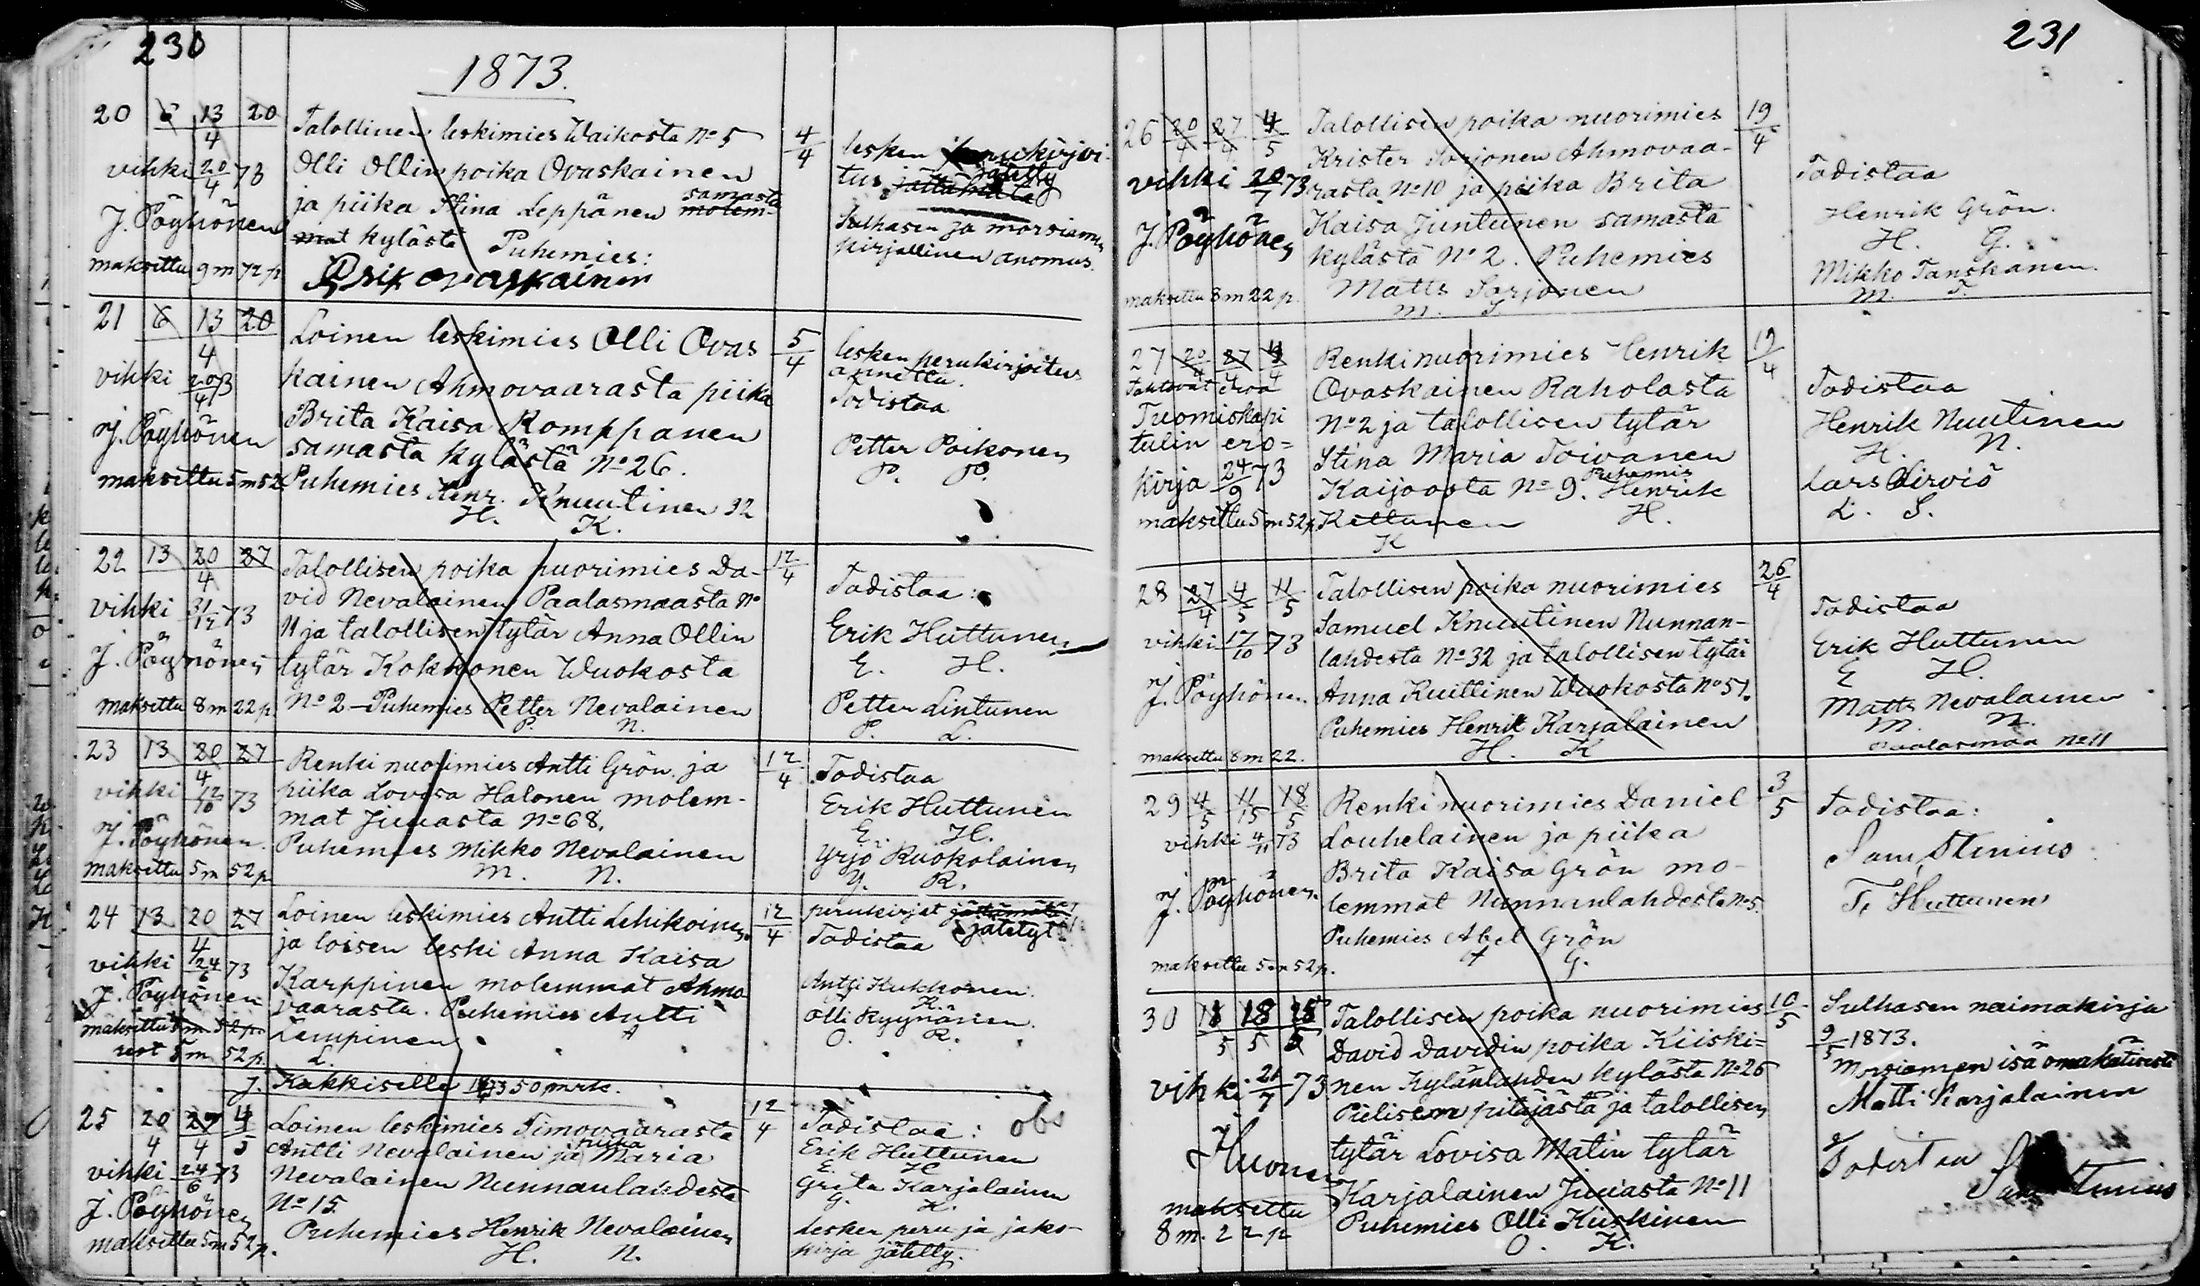 230
1873.
20 6 13 20
4
vihki 20/4 73
J. Pöyhönen
maksettu 9 m 72 p
Talollinen leskimies Waikosta No 5
Olli Ollin poika Ovaskainen
ja piika Stina Leppänen samasta molem-
mat kylästä Puhemies:
Erik ovaskainen
4/4
lesken perukirjoi-
tus jätetty
Sulhasen ja morsiamen
kirjallinen anomus.
21 6 13 20
4
vihki 20/4 73
J. Pöyhönen
maksettu 5 m 52
Loinen leskimies Olli Ovas
kainen Ahmovaarasta piika
Brita Kaisa Romppanen
samasta kylästä No 26.
Puhemies Henr. Knuutinen 32
H. K.
5/4
lesken perukirjoitus
annettu.
Todistaa
Petter Poikonen
P. P.
22 13 20 27
4
vihki 31/12 73
J. Pöyhönen
maksettu 8 m 22 p
Talollisen poika nuorimies Da-
vid Nevalainen Paalasmaasta No
11 ja talollisen tytär Anna Ollin
tytär Kokkonen Wuokosta
No 2 – Puhemies Petter Nevalainen
P. N.
12/4
Todistaa:
Erik Huttunen
E. H.
Petter Lintunen
P. L.
23 13 20 27
4
vihki 12/10 73
J. Pöyhönen.
maksettu 5 m 52 p
Renki nuorimies Antti Grön ja
piika Lovisa Halonen molem-
mat Juuasta No 68.
Puhemies Mikko Nevalainen
M. N.
12/4
Todistaa
Erik Huttunen
E. H.
Yrjö Ruokolainen
Y. R.
24 13 20 27
4
vihki 24/6 73
J. Pöyhönen
maksettu 5 m 52 p
rest 5 m 52 p.
Loinen leskimies Antti Lehikoinen
ja loisen leski Anna Kaisa
Karppinen molemmat Ahmo
vaarasta. Puhemies Antti
Lempinen A
L.
J. Kakkiselle 73 50 mrk.
12/4
perukirjat jättämätä
jätetyt
Todistaa
Antti Kukkonen
A K
Olli Ryynänen.
O. R.
25 20/4 27/4 4/5
vihki 24/6 73
J. Pöyhönen
maksettu 5 m 52 p.
Loinen leskimies Timovaarasta
Antti Nevalainen ja piika Maria
Nevalainen Nunnanlahdesta
No 15
Puhemies Henrik Nevalainen
H. N.
12/4
Todistaa: obs
Erik Huttunen
E. H
Greta Karjalainen
G. K.
Lesken peru ja jako-
kirja jätetty.
231
26 20/4 27/4 4/5
vihki 20/7 73
J. Pöyhönen
maksettu 8 m 22 p.
Talollisen poika nuorimies
Krister Sorjonen Ahmovaa-
rasta No 10 ja piika Brita
Kaisa Juntunen samasta
kylästä No 2. Puhemies
Matts Sorjonen
M. S.
19/4
Todistaa
Henrik Grön.
H. G.
Mikko Tanskanen.
M. T.
27 20/4 27/4 4/4
Tahtovat eroa
Tuomiokapi
tulin ero=
kirja 24/9 73
maksettu 5 m 52 p
Renki nuorimies Henrik
Ovaskainen Raholasta
No 2 ja talollisen tytär
Stina Maria Toivanen
Kaijoosta No 9. Puhemis Henrik
Kettunen H.
K
19/4
Todistaa
Henrik Nuutinen
H. N.
Lars Sirviö
L. S.
28 27/4 4/5 11/5
vihki 17/10 73
J. Pöyhönen
maksettu 8 m 22.
Talollisen poika nuorimies
Samuel Knuutinen Nunnan-
lahdesta No 32 ja talollisen tytär
Anna Kuittinen Wuokosta No 51.
Puhemies Henrik Karjalainen
H. K
26/4
Todistaa
Erik Huttunen
E H.
Matts Nevalainen
M. N.
Paalasmaa No 11
29 4/5 11/15 18/5
vihki 4/11 73
J. Pöyhönen.
maksettu 5 m 52 p.
Renki nuorimies Daniel
Louhelainen ja piika
Brita Kaisa Grön mo-
lemmat Nunnanlahdesta No 5.
Puhemies Abel Grön
A G.
3/5
Todistaa:
Sam Stenius
T. Huttunen
30 11/5 18/5 25/5
vihki 21/7 73
Huonen
maksettu
8 m. 22 p
Talollisen poika nuorimies
David Davidin poika Kiiski=
nen Kylänlahden kylästä No 26
Pielisem pitäjästä ja talollisen
tytär Lovisa Matin tytär
Karjalainen Juuasta No 11
Puhemies Olli Kiiskinen
O. K.
10/5
Sulhasen naimakirja
9/5 1873.
Morsiamen isä omakätisesti
Matti Karjalainen
Todistaa
Sam Stenius